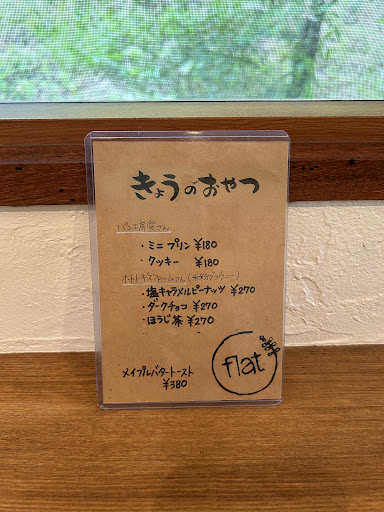 きょうのおやつ
パン工房愛さん
・ミニプリン ¥180
・クッキー ¥180
ホトトギスファームさん(米粉ブラウニー)
・塩キャラメルピーナッツ ¥270
・ダークチョコ ¥270
・ほうじ茶 ¥270
メイプルバタートースト
¥380
flat